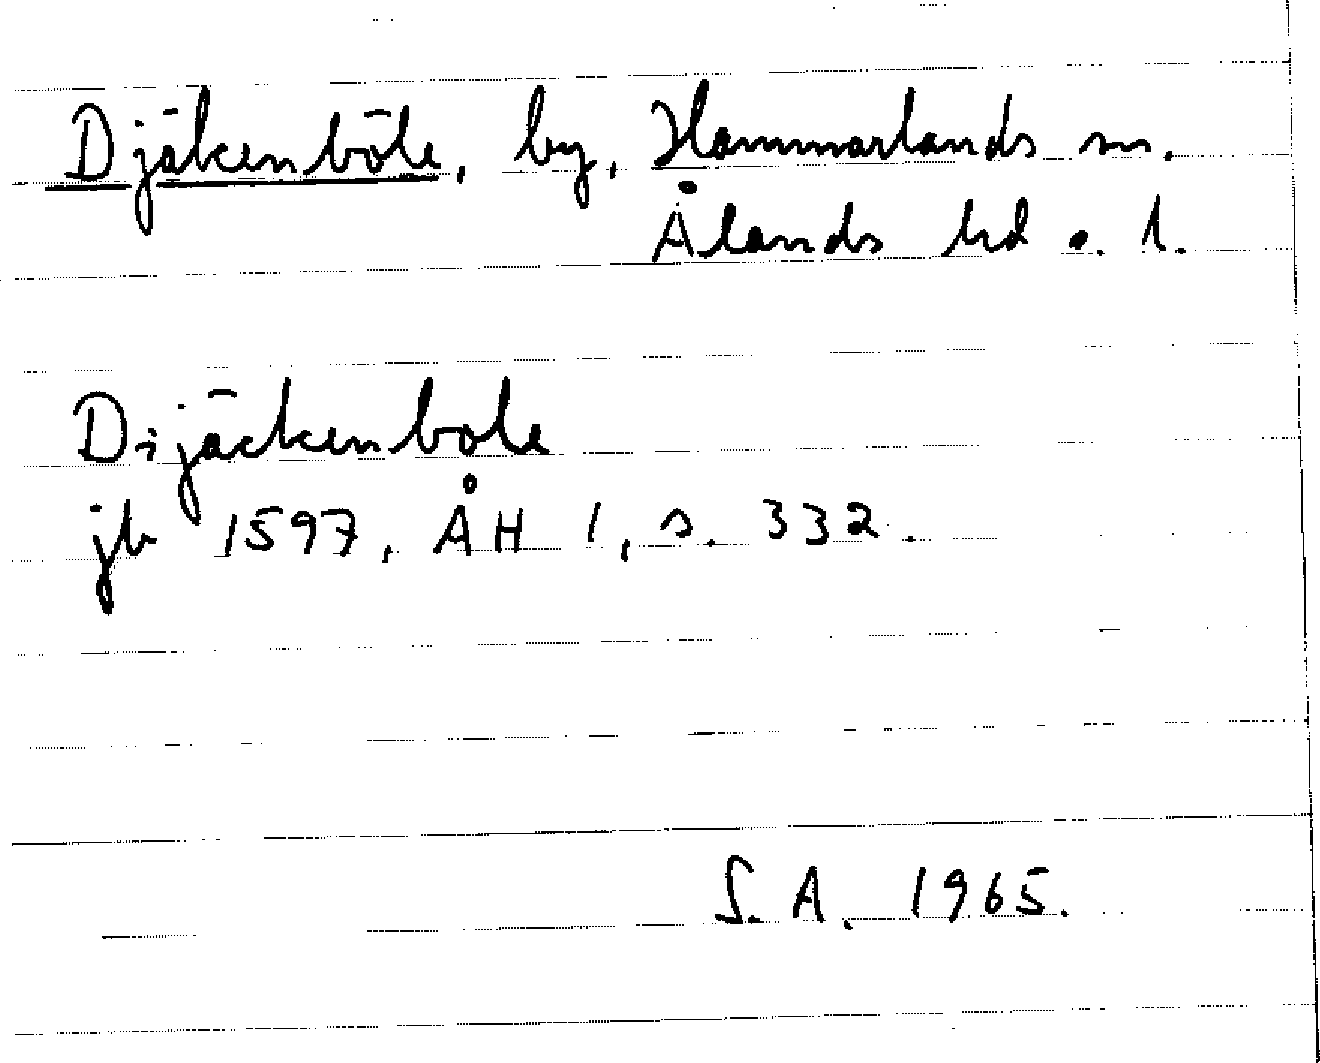 Djäkenböle, by, Hammarlands sn.
Ålands hd o. l.
Dijäckenbole
jb 1597, ÅH 1, s. 332.
S. A. 1965.